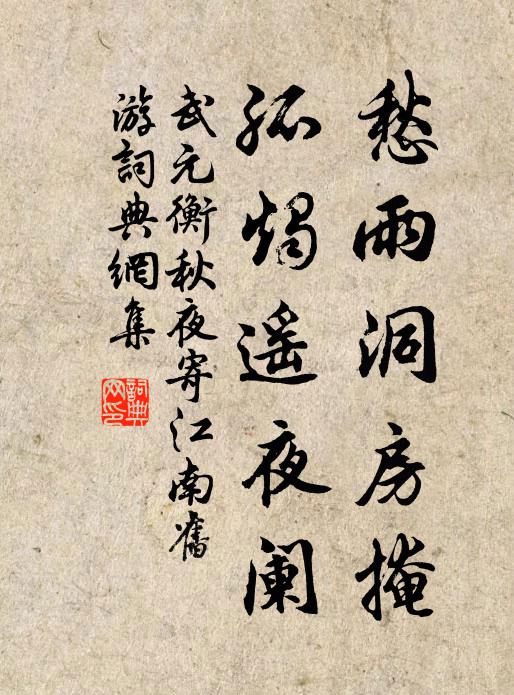 愁雨洞房掩
孤燭遥夜阑
武元衡秋夜寄江南舊
游詞典網集
詞典
网印